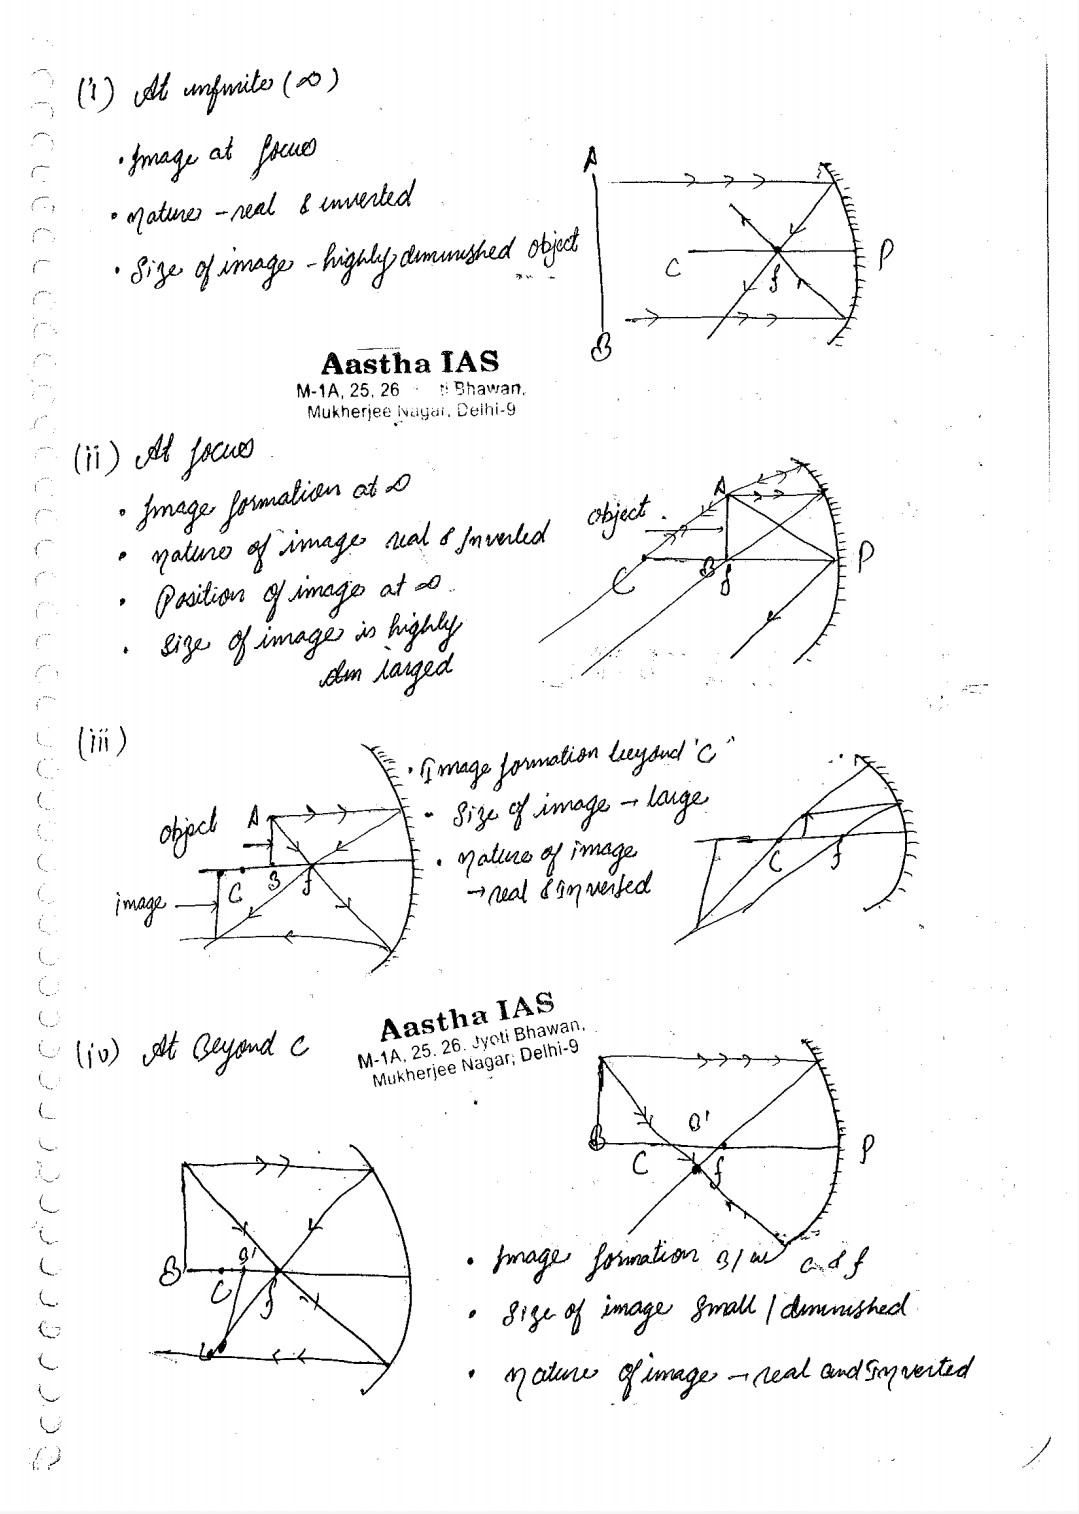 (i) At infinite (∞)
• Image at focus
• Nature - real & inverted
• Size of image - highly diminished object
A
C
f
P
B
Aastha IAS
M-1A, 25, 26 ti Bhawan,
Mukherjee Nagar, Delhi-9
(ii) At focus
• Image formation at ∞
• nature of image real & Inverted
• Position of image at ∞
• Size of image is highly
larged
object
A
C
B
f
P
(iii)
object A
C B f
image
• Image formation beyond 'C"
• Size of image → large
• nature of image
→ real & Inverted
C f
(iv) At Beyond C
Aastha IAS
M-1A, 25, 26. Jyoti Bhawan,
Mukherjee Nagar, Delhi-9
B C B' f P
B C B' f
• Image formation B/w C & f
• Size of image small / diminished
• nature of image → real and Inverted